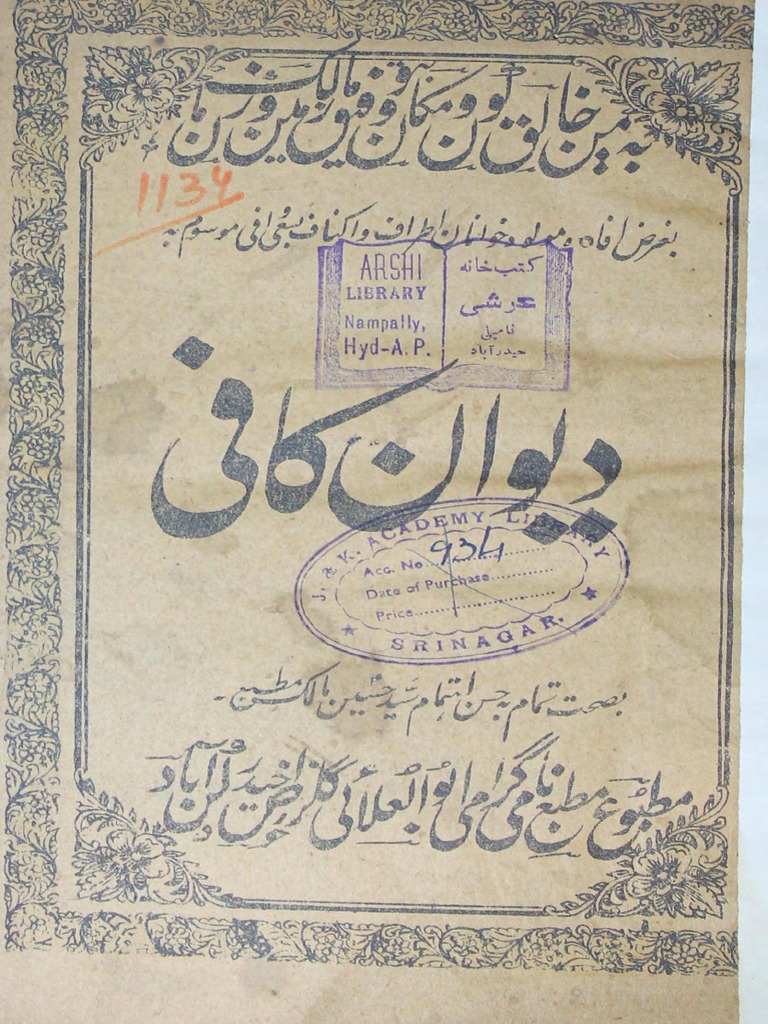 بہ یمن خالق کون و مکان و توفیق مالک زمین و زمان
1134
بغرض افادہ مولود خوانان اطراف و اکناف بسعی وافی موسوم بہ
ARSHI
LIBRARY
Nampally,
Hyd-A.P.
کتب خانہ
عرشی
نامپلی
حیدرآباد
دیوان کافی
J. & K. ACADEMY LIBRARY
Acc. No. 934
Date of Purchase
Price
SRINAGAR.
بصحت تمام بہ حسن اہتمام سید حسین مالک مطبع
مطبوع مطبع نامی گرامی ابوالعلائی حیدرآباد دکن